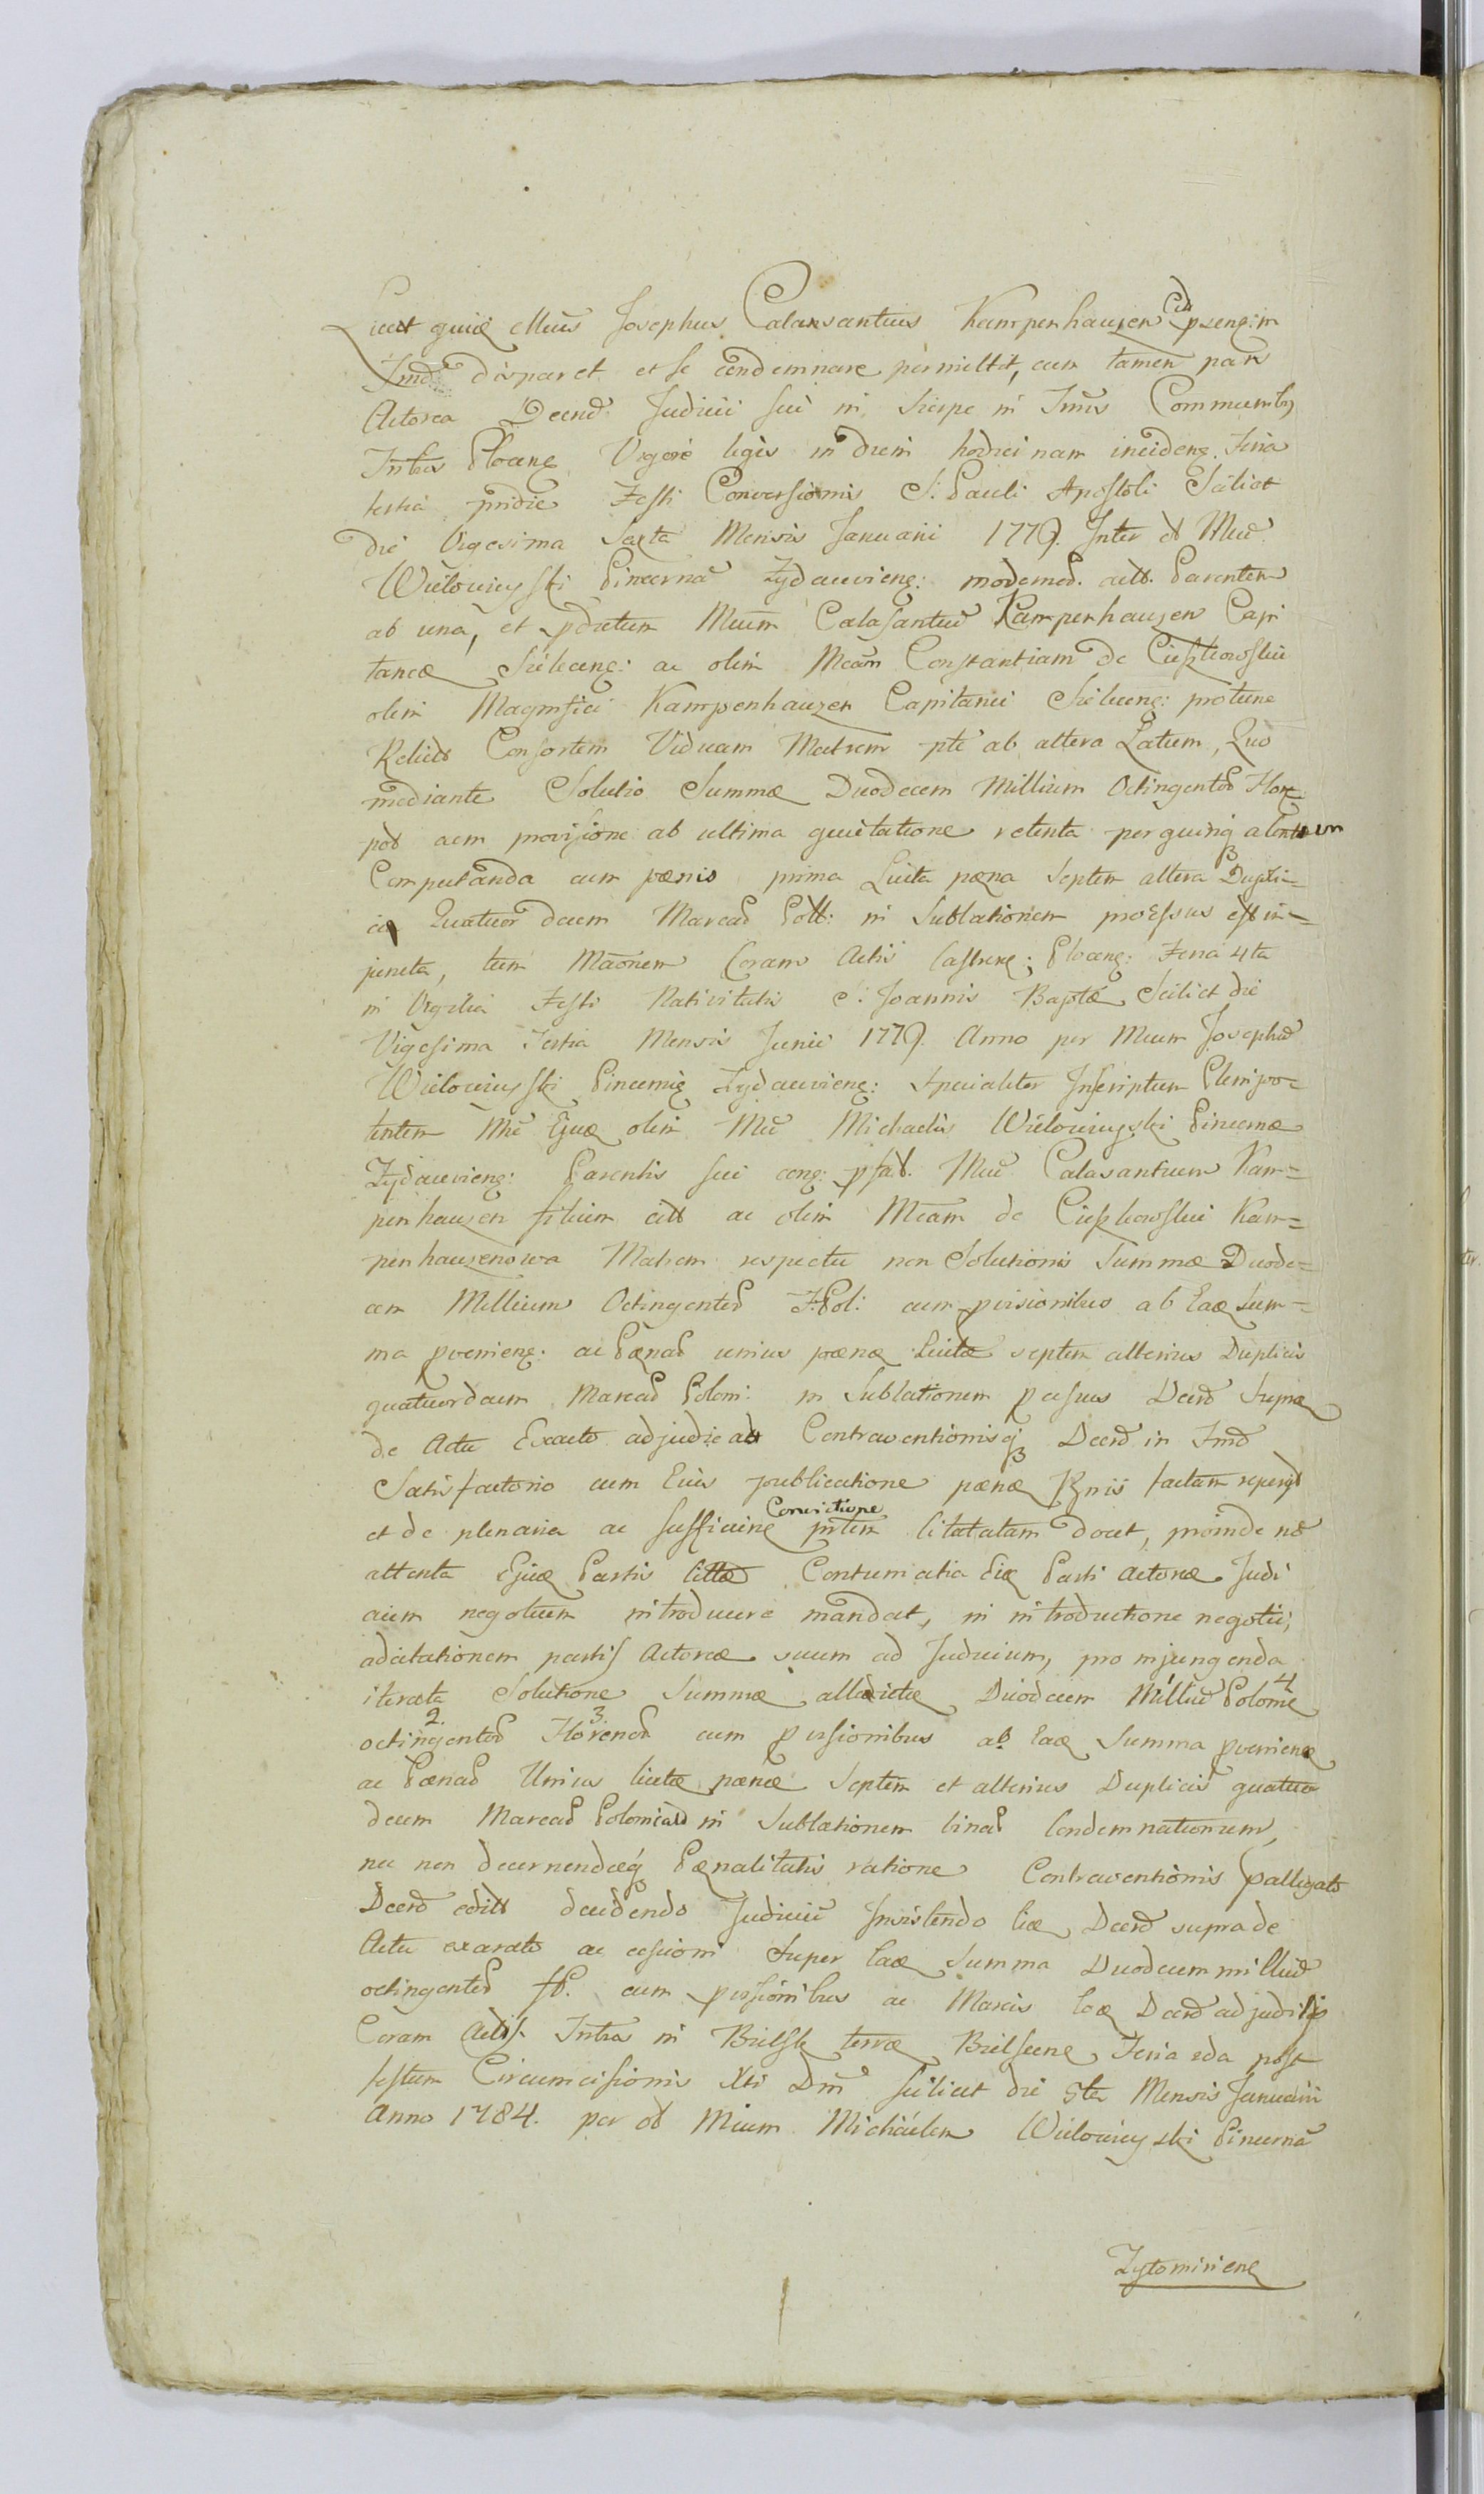 Licet quidẽ Mũus Josephus Calansantius Kampenhauzen Citt psenẽ: in
Jmd disparet et se condemnare permittit, cum tamen pars
Actorea Decrd Judicii sui in Sierpc in Jnis Communibq
Intra Plocenẽ Vigore legis in diem hodiernam incidenẽ. Feria
tertia pridie Festi Conversionis S: Pauli Apostoli Scilicet
die Vigesima Sexta Mensis Januarii 1779. Inter ol Mũu
Wielowieyski Pincernã Zydacvienẽ: modernor. actt. Parentem
ab una, et pdictum Mũum Calasantiũ Kampenhauzen Capi
taneũ Sielecenẽ: ac olim Mẽam Constantiam de Cieszkowskii
olim Magnifici Kampenhauzen Capitanei Sielecenẽ: pro tunc
Relictã Consortem Viduam Matrem pte ab altera Latum, Quo
mediante Solutio Summæ Duodecem Millium Octingentor Floren
pol cum provisione ab ultima quietatione retenta per quinq a Centum
Computanda cum pœnis prima Licita pœna Septem altera Dupli=
ci Quatuordecem Marcar Poll: in Sublationem processus est in=
juncta, tum Mãonem Coram Actis Castren: Plocenẽ: Feria 4ta
in Vigilia Festi Nativitatis S: Joannis Baptæ Scilicet die
Vigesima Tertia Mensis Junii 1779. Anno per Mũum Josephũ
Wielowieyski Pincernię Zydacvienẽ: Specialiter Inscriptum Plenipo=
tentem Mẽi Ejusq olim Mẽi Michaelis Wielowieyski Pincernæ
Zydacvienẽ: Parentis sui conẽ: psat. Mũu Calasantium Kam=
penhauzen filium citt ac olim Mẽam de Cieszkowskii Kam=
penhauzenowa Matrem respectu non Solutionis Summæ Duode=
cem Millium Octingentor F. Pol: cum pvisionibus ab Eaq Sum=
ma pvenienẽ: ac Pœnar unius pœnæ Licitæ septem alterius Duplicis
quatuordecem Marcar Polon: in Sublationem pcessus Decrd Supra
de Actu Exacto adjudicat Contraventionisq Decrd in Jmd
Satisfactorio cum Ejus publicatione pœnæ Regnis factam reperit
et de plenaria ac sufficienẽ Convictione prtem Citatatam docet, proinde nõ
attenta Ejusq Partis Cittæ Contumatia Eiq Parti Actoreæ Judi
cium negotium introducere mandat, in introductione negotii,
ad citationem partis Actoreæ suum ad Judicium, pro injungenda
iterata Solutione Summæ allidictæ Duodecem Milliũ 4 Polonie
2. octingentor 3. Florenor cum pvisionibus ab Eaq Summa pvenienẽ
ac Pœnar Unius licitæ pœnæ Septem et alterius Duplicis quatuor
decem Marcar Polonical in Sublationem binar Condemnationum,
nec non decernendæq Pœnalitatis ratione Contraventionis palligato
Decrd editt decidendo Judicium Insistendo Eiq Decrd supra de
Actu exarato ac cessioni Super Eaq Summa Duodecem milliũ
octingentor fp. cum pvisionibus ac Marcis Eoq Decrd adjudicis
Coram Actis Intra in Bielsk terræ Bielscenẽ Feria 2da post
festum Circumcisionis Xti Dm̃ scilicet die 5ta Mensis Januarii
Anno 1784. per ol Mũum Michaelem Wielowieyski Pincernã
Zytomirienẽ